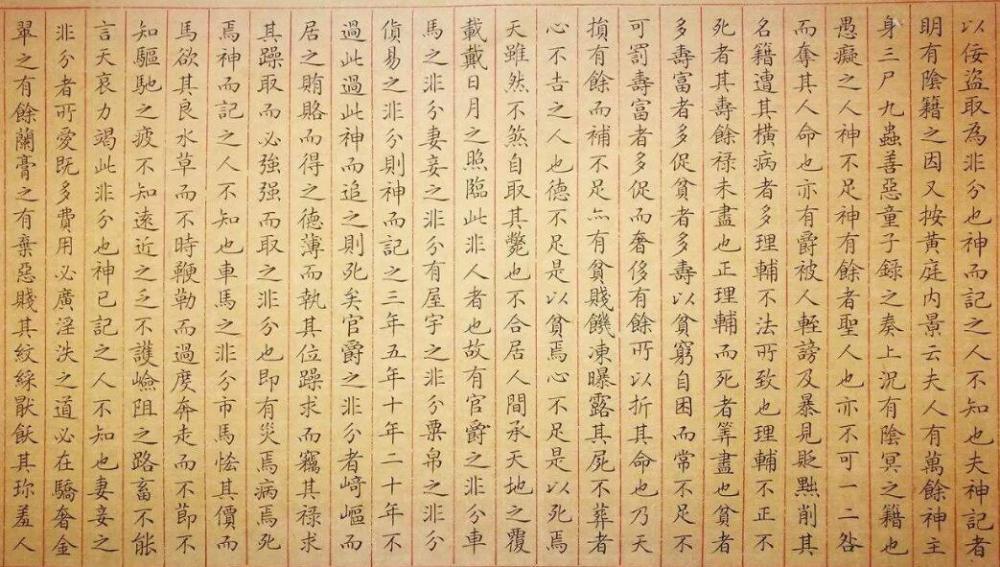 以佞盜取為非分也神而記之人不知也夫神記者
明有陰籍之因又按黃庭內景云夫人有萬餘神主
身三尸九蟲善惡童子録之奏上況有陰冥之籍也
愚癡之人神不足神有餘者聖人也亦不可一二咎
而奪其人命也亦有爵被人輊謗及暴見貶黜削其
名籍遭其橫病者多理輔不法所致也理輔不正不
死者其壽餘祿未盡也正理輔而死者筭盡也貧者
多壽富者多促貧者多壽以貧窮自困而常不足不
可罰壽富者多促而奢侈有餘所以折其命也乃天
損有餘而補不足亦有貧賤饑凍曝露其屍不葬者
心不吉之人也德不足是以貧焉心不足是以死焉
天雖然不煞自取其斃也不合居人間承天地之覆
載戴日月之照臨此非人者也故有官爵之非分車
馬之非分妻妾之非分有屋宇之非分粟帛之非分
債易之非分則神而記之三年五年十年二十年不
過此過此神而追之則死矣官爵之非分者崎嶇而
居之賄賂而得之德薄而執其位躁求而竊其祿求
其躁取而必強强而取之非分也即有災焉病焉死
焉神而記之人不知也車馬之非分市馬恡其價而
馬欲其良水草而不時鞭勒而過度奔走而不節不
知驅馳之疲不知遠近之乏不護嶮阻之路畜不能
言天哀力竭此非分也神已記之人不知也妻妾之
非分者所愛既多費用必廣淫泆之道必在驕奢金
翠之有餘蘭膏之有棄惡賤其紋綵猒飫其珍羞人